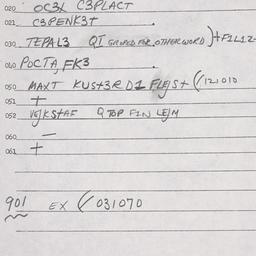 020 OC3X C3PLACT
021 C3PENK3T
030 TEPAL3 QI GROPED FOR OTHER WORD )+F1L12-
040 POCTA, FK3
050 MAXT KUST3R D1 FLEJST (/121010
051 +
052 VEJKSTAF Q TOP F1N LEJM
060 —
061 +
901 EX (/031070